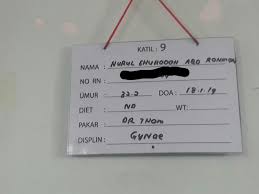 KATIL : 9
NAMA : NURUL SHUHADAH ABD RAHMAN
NO RN :
UMUR : DOA : 18.1.19
DIET : ND WT:
PAKAR : DR THAM
DISPLIN : GYNAE